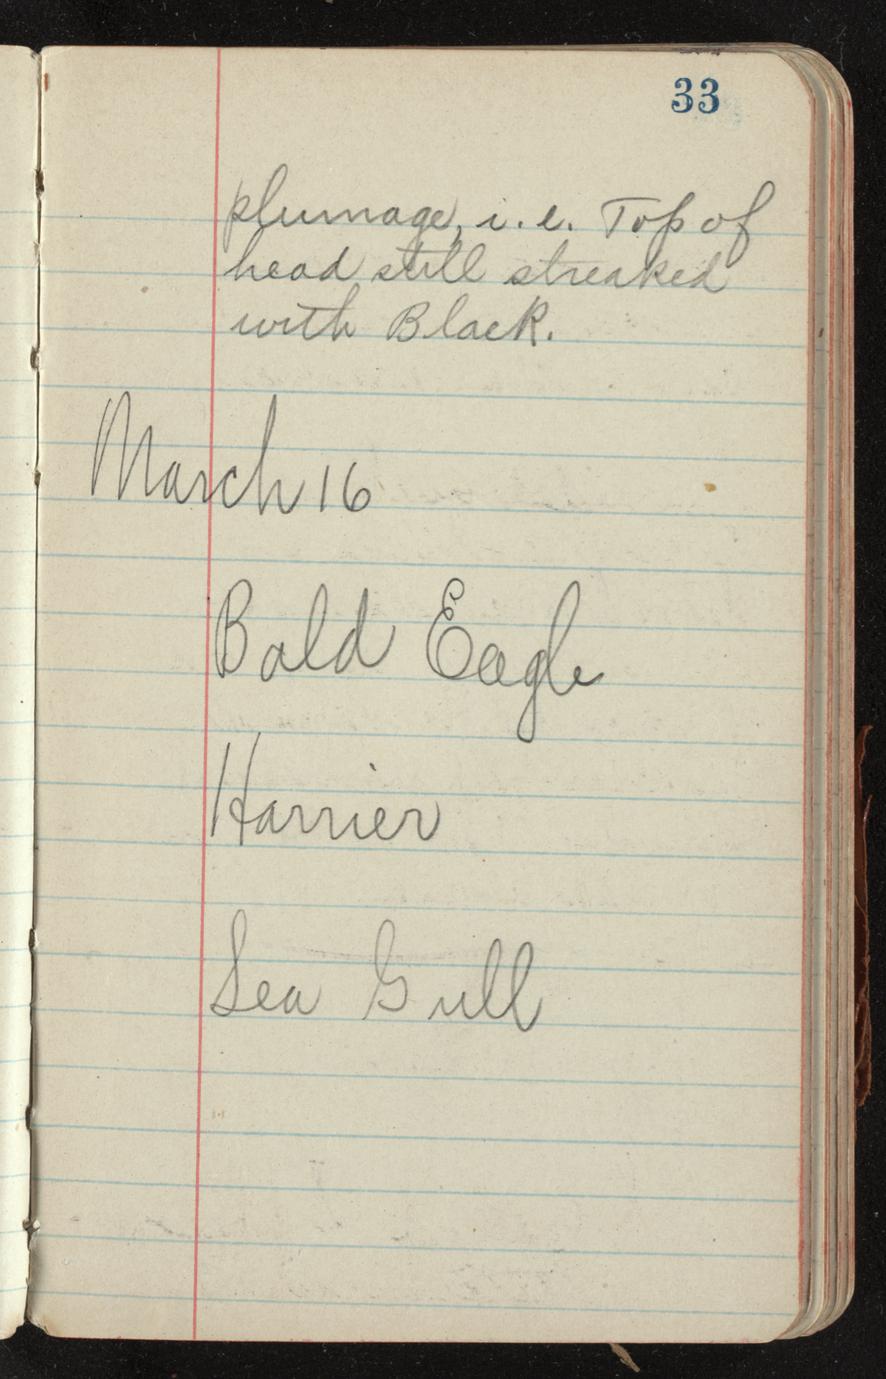 33
plumage, i.e. Top of
head still streaked
with Black.
March 16
Bald Eagle
Harrier
Sea Gull